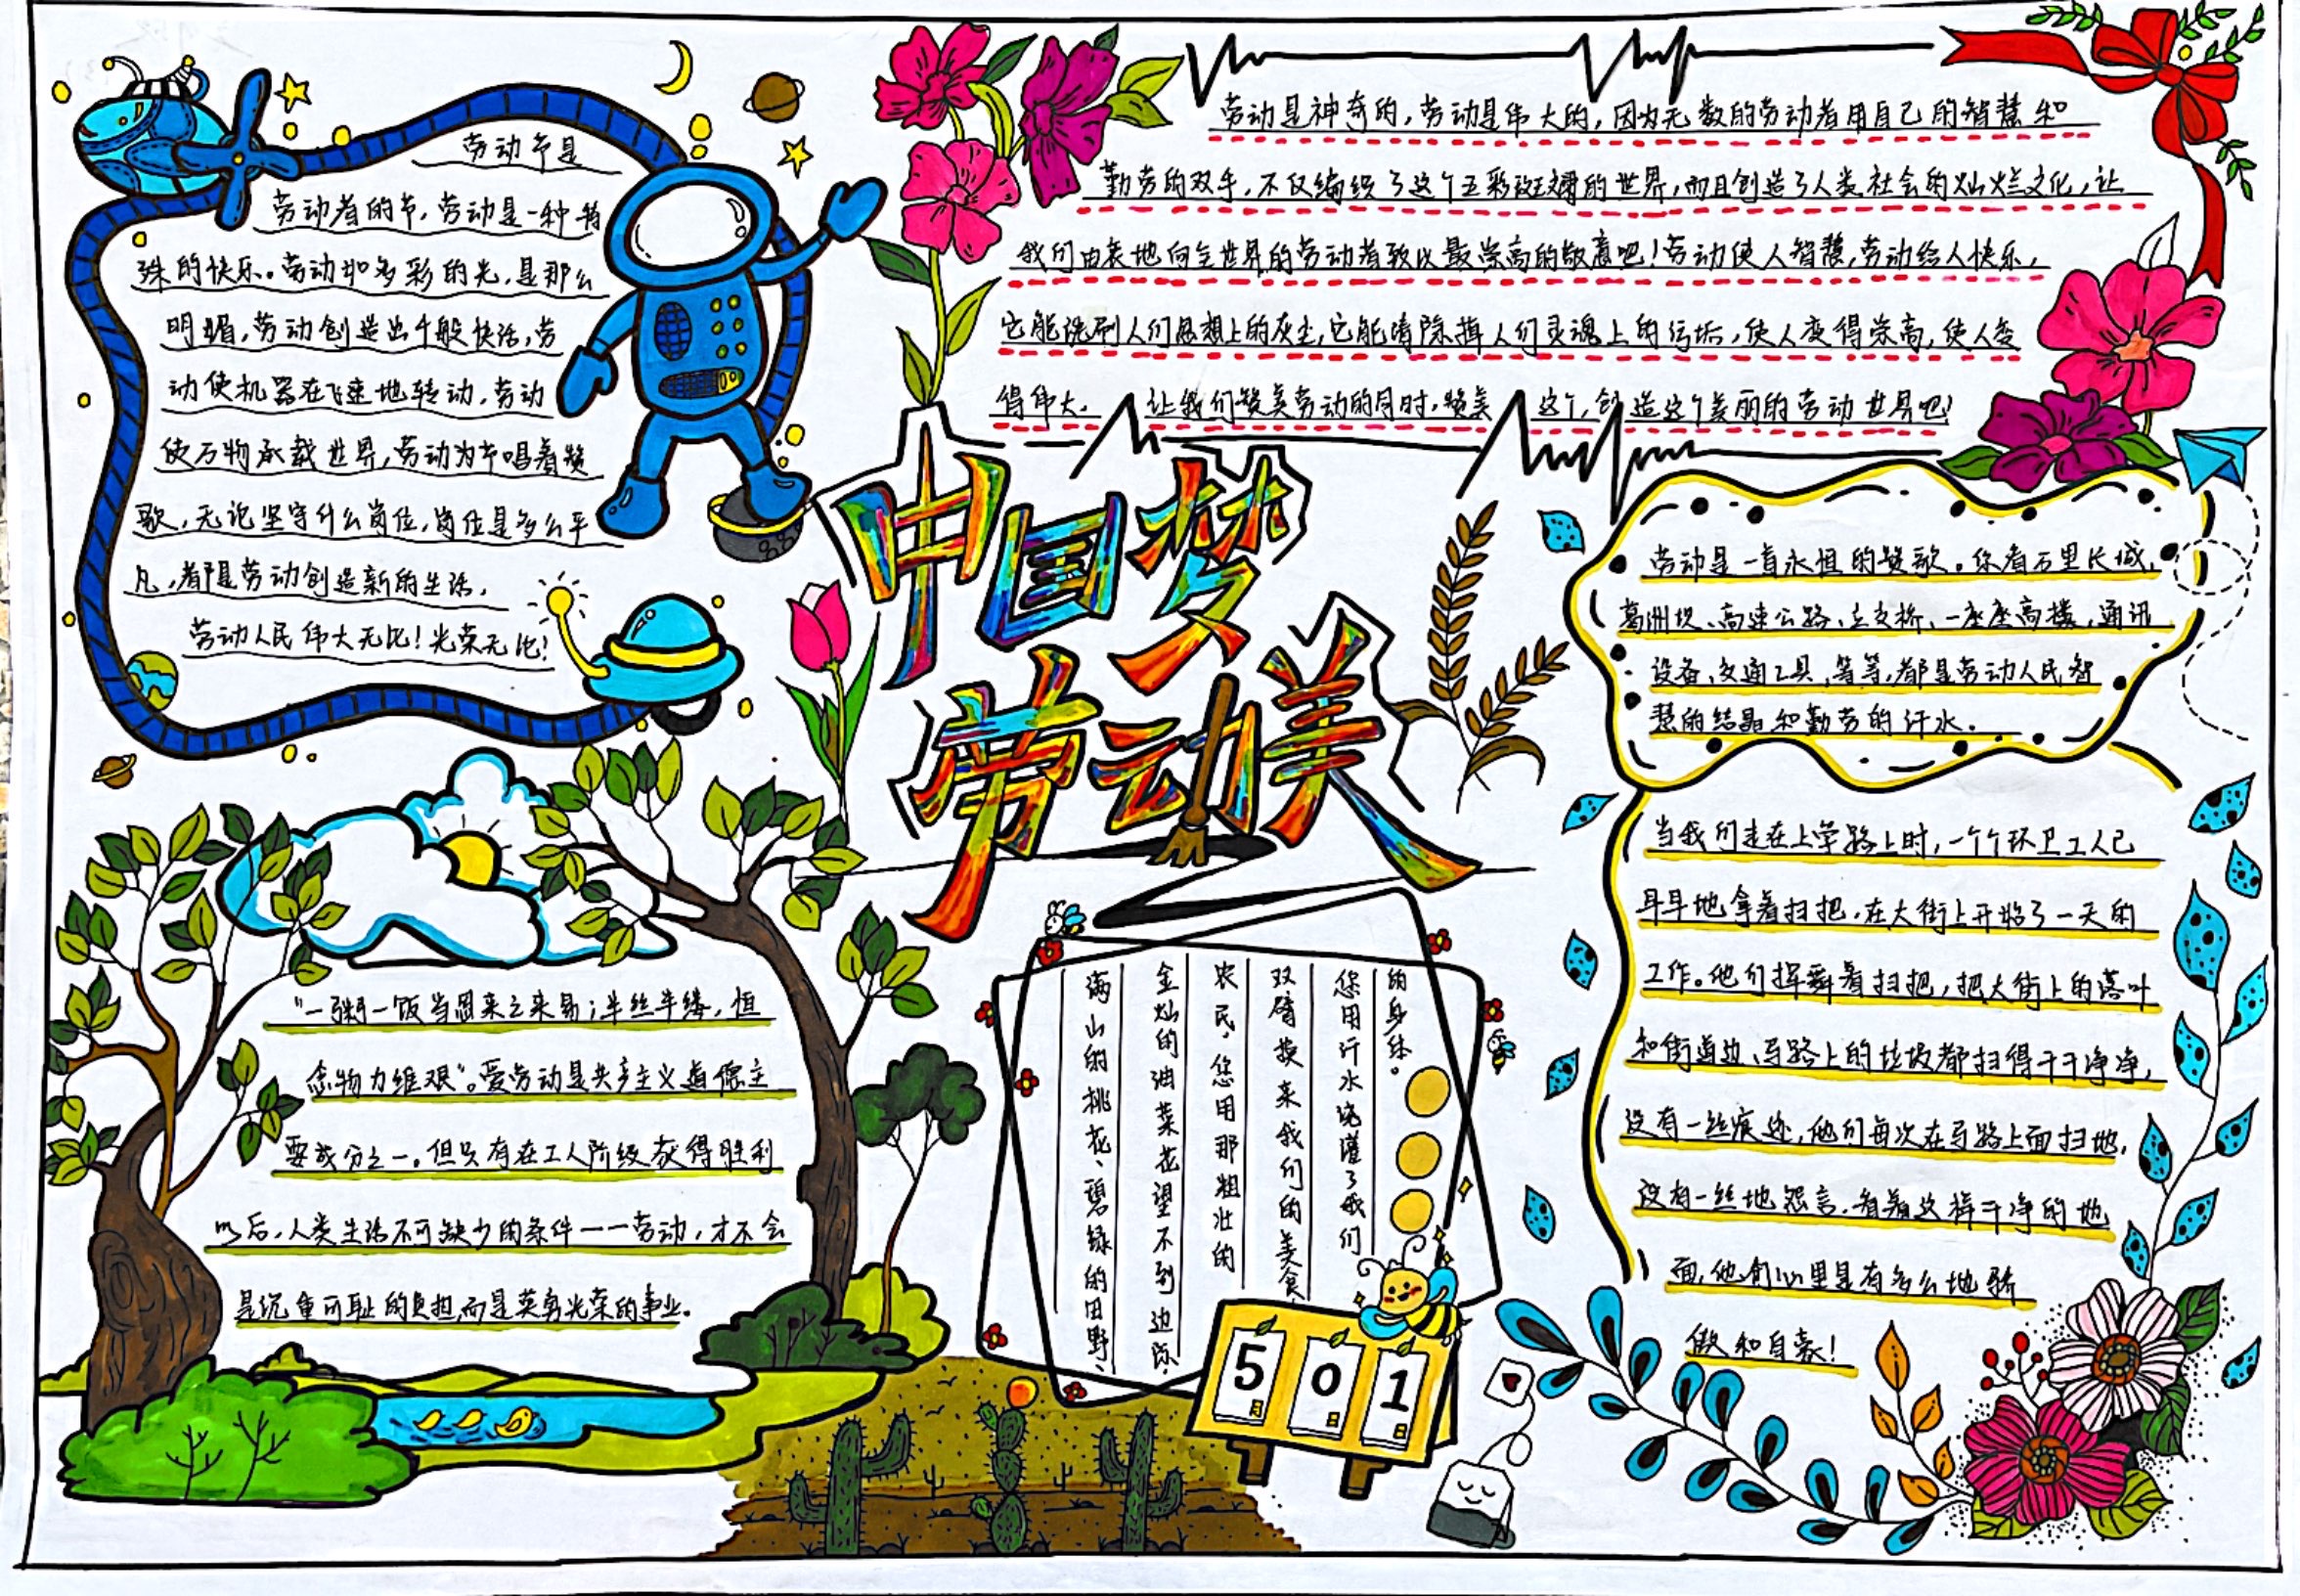 劳动节是
劳动者的节，劳动是一种特
殊的快乐。劳动如多彩的光，是那么
明媚，劳动创造出千般快活，劳
动使机器在飞速地转动，劳动
使万物承载世界，劳动为节唱着赞
歌，无论坚守什么岗位，岗位是多么平
凡，都是劳动创造新的生活，
劳动人民伟大无比！光荣无比！
劳动是神奇的，劳动是伟大的，因为无数的劳动者用自己的智慧和
勤劳的双手，不仅编织了这个五彩斑斓的世界，而且创造了人类社会的灿烂文化，让
我们由衷地向全世界的劳动者致以最崇高的敬意吧！劳动使人智慧，劳动给人快乐，
它能洗刷人们思想上的灰尘，它能清除掉人们灵魂上的污垢，使人变得崇高，使人变
得伟大。让我们赞美劳动的同时，赞美这个，创造这个美丽的劳动世界吧！
中国梦
劳动美
劳动是一首永恒的赞歌。你看万里长城，
葛洲坝、高速公路、立交桥、一座座高楼，通讯
设备、交通工具，等等，都是劳动人民智
慧的结晶和勤劳的汗水。
当我们走在上学路上时，一个个环卫工人已
早早地拿着扫把，在大街上开始了一天的
工作。他们挥舞着扫把，把大街上的落叶
和街道边、马路上的垃圾都扫得干干净净，
没有一丝痕迹，他们每次在马路上面扫地，
没有一丝地怨言，看着这样干净的地
面，他们心里是有多么地骄
傲和自豪！
“一粥一饭当思来之来易；半丝半缕，恒
念物力维艰”。爱劳动是共产主义道德主
要成分之一。但只有在工人阶级获得胜利
以后，人类生活不可缺少的条件一一劳动，才不会
是沉重可耻的负担，而是英勇光荣的事业。
满山的桃花、碧绿的田野、
金灿的油菜花望不到边际、
农民，您用那粗壮的
双臂换来我们的美食，
您用汗水浇灌了我们
的身体。
5 0 1
月 日 日